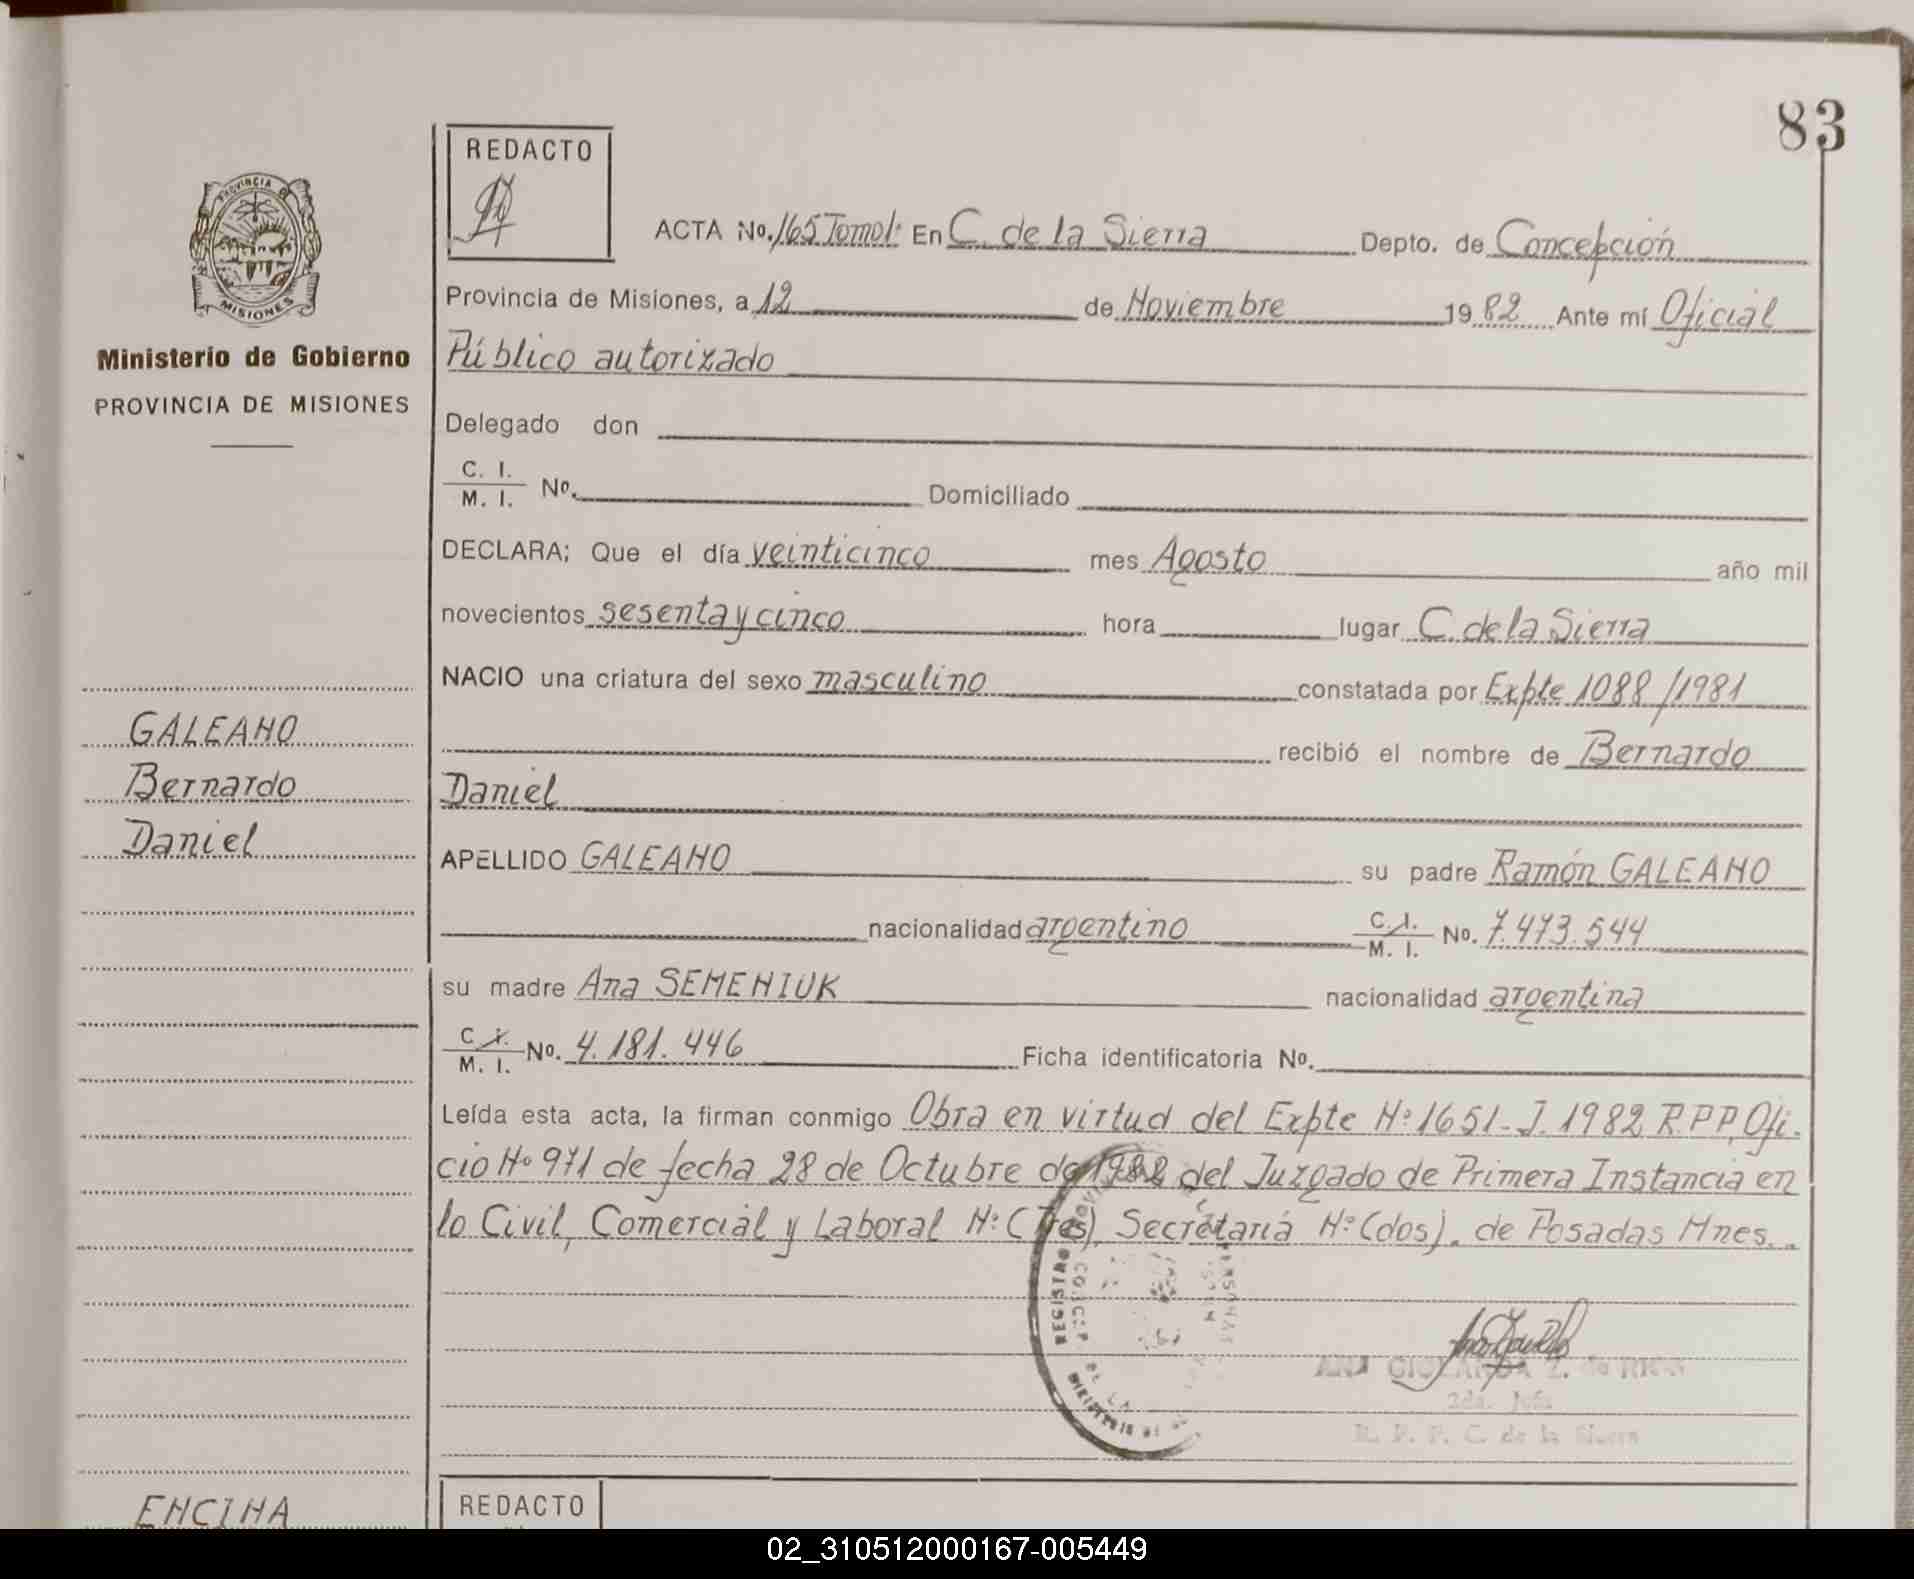 83
REDACTO
PROVINCIA DE
MISIONES
Ministerio de Gobierno
PROVINCIA DE MISIONES
ACTA No. 165 Tomo I: En C. de la Sierra Depto. de Concepción
Provincia de Misiones, a 12 de Noviembre 1982 Ante mí Oficial
Público autorizado
Delegado don
C. I.
M. I. No. Domiciliado
DECLARA; Que el día veinticinco mes Agosto año mil
novecientos sesenta y cinco hora lugar C. de la Sierra
NACIO una criatura del sexo masculino constatada por Expte 1088/1981
recibió el nombre de Bernardo
Daniel
GALEANO
Bernardo
Daniel
APELLIDO GALEANO su padre Ramón GALEANO
nacionalidad argentino C. I. M. I. No. 7.473.544
su madre Ana SEMENIUK nacionalidad argentina
C. I. M. I. No. 4.181.446 Ficha identificatoria No.
Leída esta acta, la firman conmigo Obra en virtud del Expte Nº 1651-J. 1982 R.P.P, Ofi-
cio Nº 971 de fecha 28 de Octubre de 1982 del Juzgado de Primera Instancia en
lo Civil, Comercial y Laboral Nº (Tres), Secretaria Nº (dos). de Posadas Mnes.
REGISTRO
2da. Jefe
R. P. P. C. de la Sierra
ENCINA
REDACTO
02_310512000167-005449